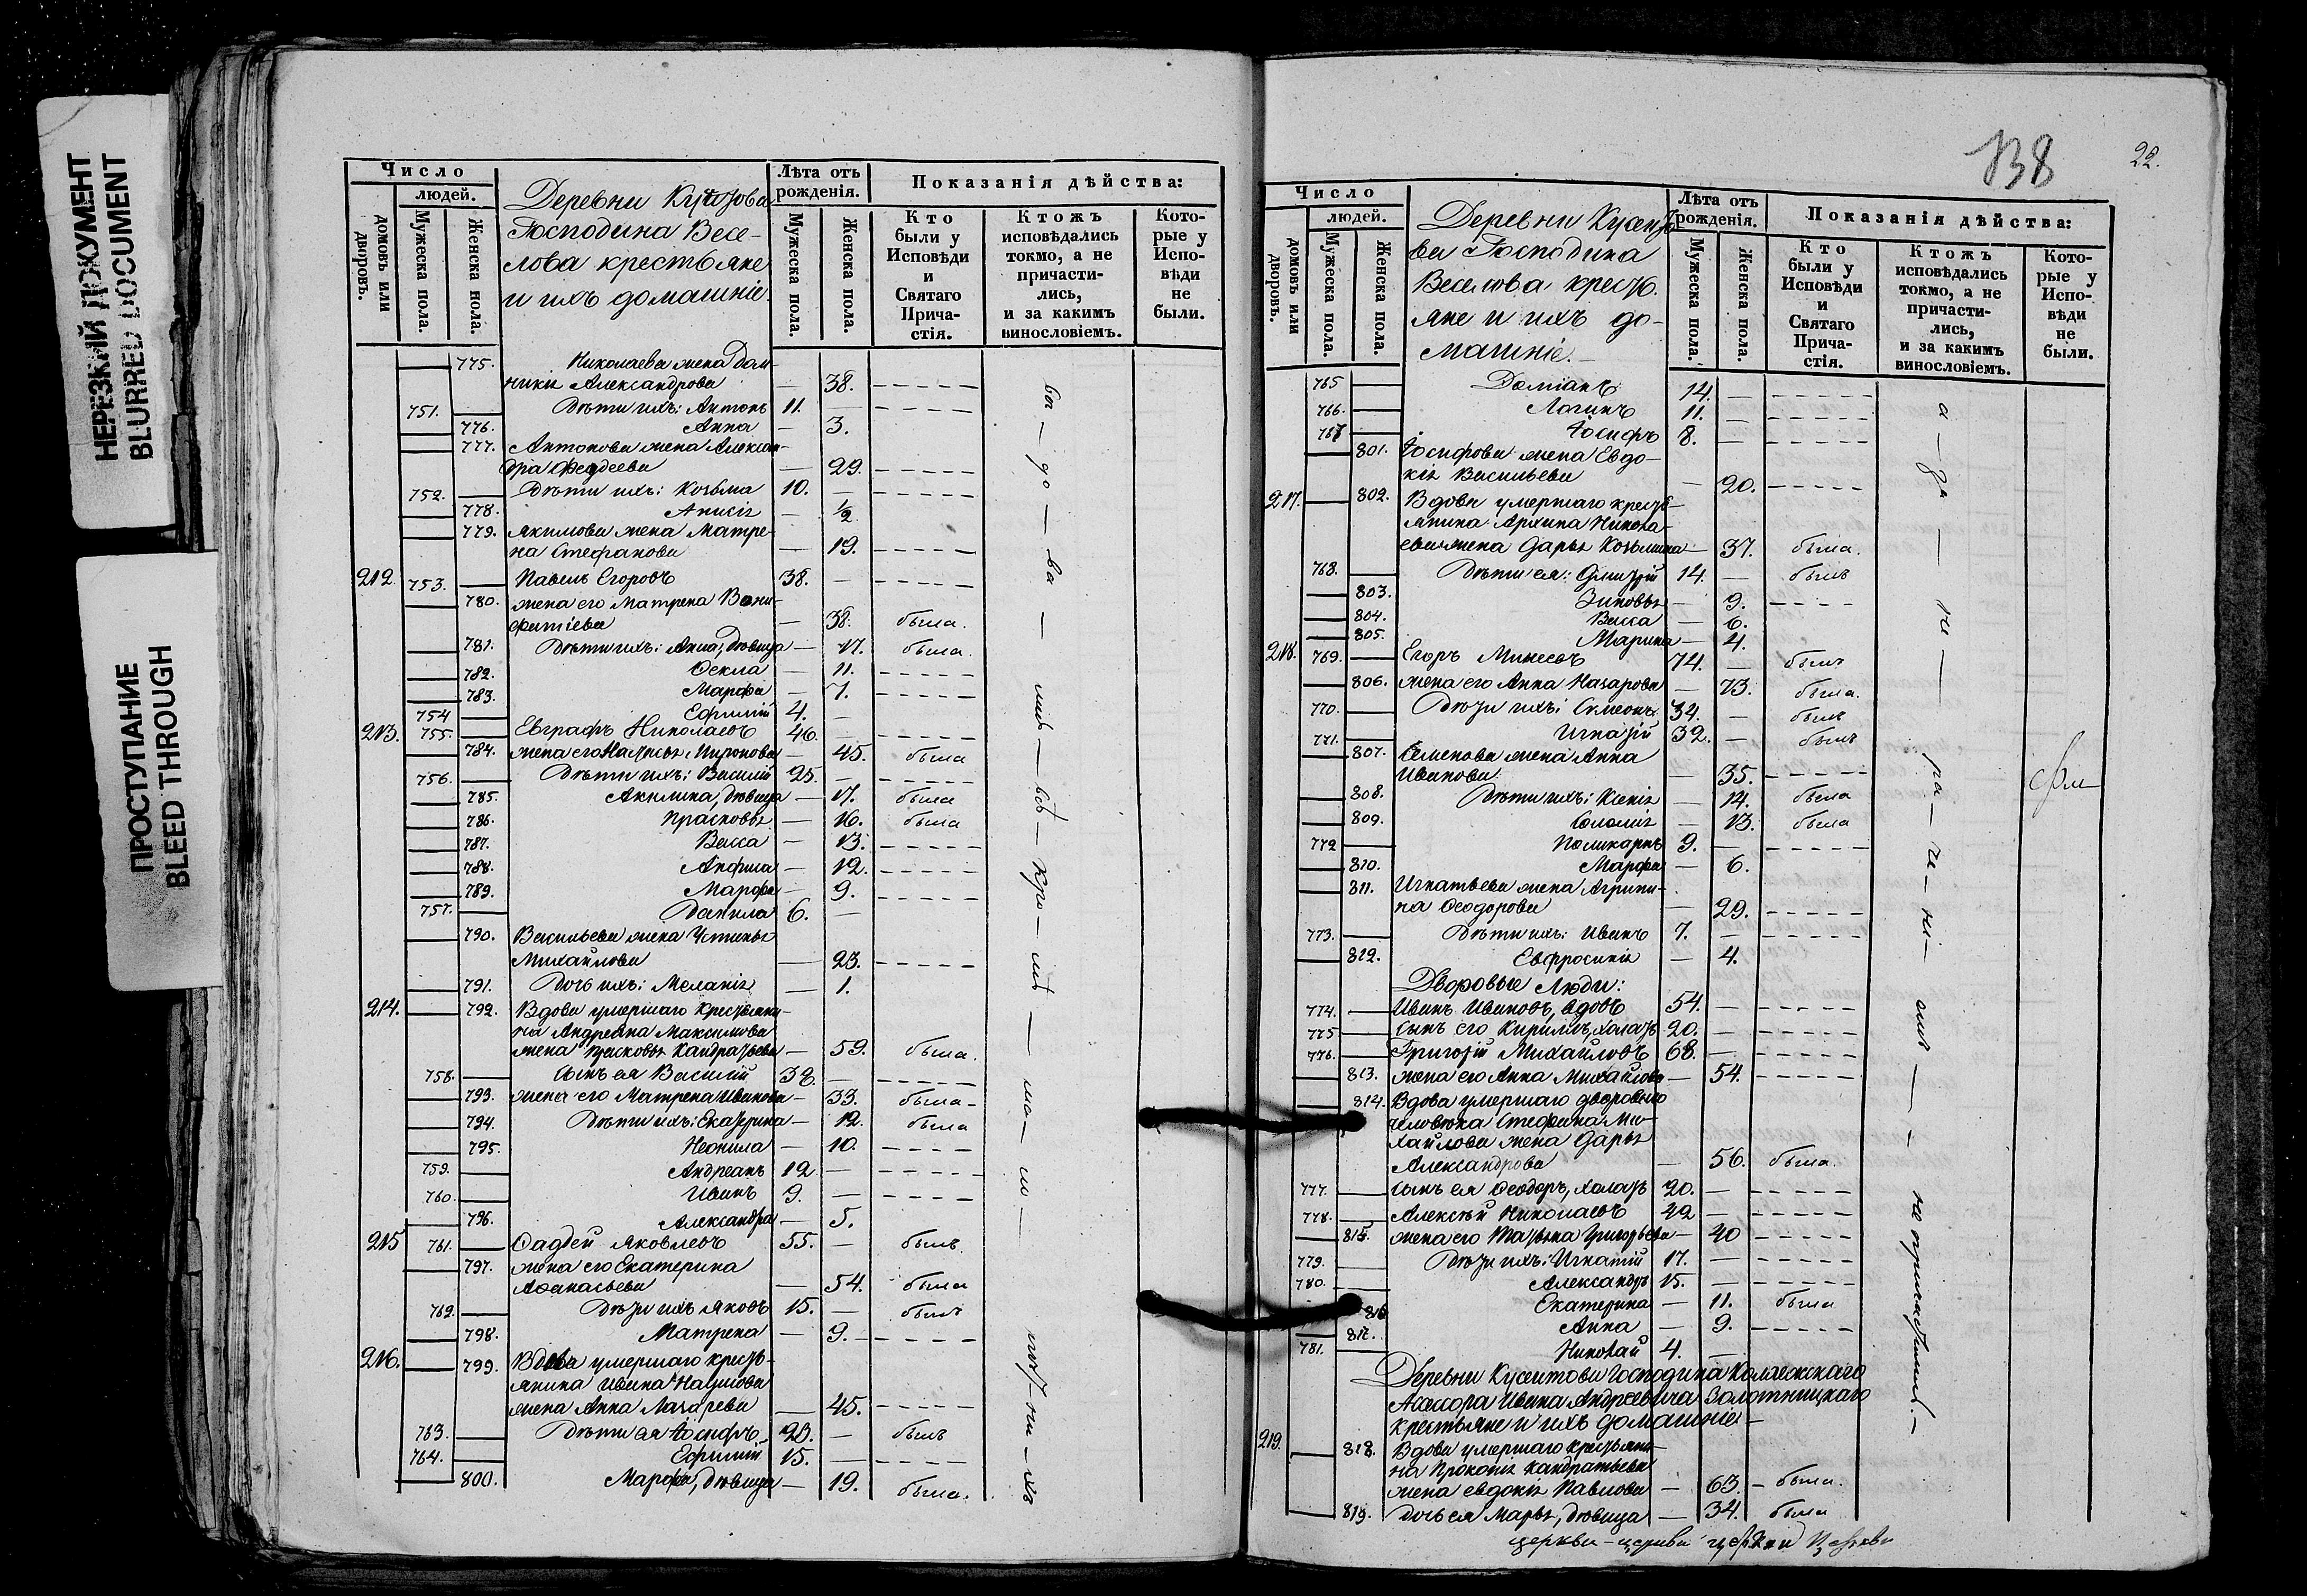 НЕРЕЗКИЙ ДОКУМЕНТ
BLURRED DOCUMENT
ПРОСТУПАНИЕ
BLEED THROUGH
Число
людей.
домовъ или дворовъ.
Мужеска пола.
Женска пола.
Деревни
Господина Весе-
лова крестьяне
и ихъ домашніе.
Лѣта отъ рожденія.
Мужеска пола.
Женска пола.
Показанія дѣйства:
Кто были у Исповѣди и Святаго Прича- стія.
Ктожъ исповѣдались токмо, а не причасти- лись, и за какимъ винословіемъ.
Кото- рые у Испо- вѣди не были.
775. Николаева жена Дом-
ники Александрова — 38.
751. Дѣти ихъ: Антонъ 11. —
776. Анна — 3.
777. Антонова жена Алексан-
дра Фаддеева — 29.
752. Дѣти ихъ: Козьма 10. —
778. Анисія — 1/2
779. Якимова жена Матре-
на Стефанова — 19.
212. 753. Павелъ Егоровъ 38. —
780. жена его Матрена Вони-
фатіева — 38. была.
781. Дѣти ихъ: Анна, дѣвица — 17. была.
782. Ѳекла — 11.
783. Марфа — 7.
754 Ефимій 4. —
213. 755. Евграфъ Николаевъ 46. —
784. жена его Наталья Миронова — 45. была
756. Дѣти ихъ: Василій 25. —
785. Акилина, дѣвица — 17. была
786. Прасковья — 16. была
787. Васса — 13.
788. Анфиса — 12.
789. Марфа — 9.
757. Данила 6. —
790. Васильева жена Устинья
Михайлова — 23.
791. Дочь ихъ: Меланія — 1.
214. 792. Вдова умершаго крестьяни-
на Андреяна Максимова
жена Прасковья Кандратьева — 59. была.
758. Сынъ ея Василій 38. —
793. жена его Матрена Иванова — 33. была
794. Дѣти ихъ: Екатерина — 12. была
795. Неонила — 10.
759. Андреанъ 12. —
760. Иванъ 9. —
796. Александра — 5.
215 761. Фаддей Яковлевъ 55. — былъ.
797. жена его Екатерина
Аѳанасьева — 54. была
762. Дѣти ихъ Яковъ 15. — былъ
798. Матрена — 9.
216. 799. Вдова умершаго кресть-
янина Ивана Наумова
жена Анна Лазарева — 45.
763. Дѣти ея Іосифъ 23. — былъ
764. Ефимій 15. —
800. Марфа, дѣвица — 19. была.
138
22.
Число
людей.
домовъ или дворовъ.
Мужеска пола.
Женска пола.
Деревни
Господина
Веселова кресть-
яне и ихъ до-
машніе.
Лѣта отъ рожденія.
Мужеска пола.
Женска пола.
Показанія дѣйства:
Кто были у Исповѣди и Святаго Прича- стія.
Ктожъ исповѣдались токмо, а не причасти- лись, и за какимъ винословіемъ.
Кото- рые у Испо- вѣди не были.
765 Доміанъ 14. —
766. Логинъ 11. —
767 Іосифъ 8. —
801. Іосифова жена Евдо-
кія Васильева — 20.
217. 802. Вдова умершаго кресть-
янина Архипа Никола-
ева жена Дарья Козьмина — 37. была.
768. Дѣти ея: Дмитрій 14. — былъ
803. Зиновья — 9.
804. Васса — 6.
805. Марина — 4.
218. 769. Егоръ Минеевъ 74. — былъ
806. жена его Анна Назарова — 73. была.
770. Дѣти ихъ: Симеонъ 34. — былъ
771. Игнатій 32. — былъ
807. Семенова жена Анна
Иванова — 35.
808. Дѣти ихъ: Ксенія — 14. была
809. Соломія — 13. была
772 Поликарпъ 9. —
810. Марфа — 6.
811. Игнатьева жена Агрипи-
на Ѳеодорова — 29.
773. Дѣти ихъ: Иванъ 7. —
812. Евфросинія — 4.
Дворовые люди:
774. Иванъ Ивановъ, вдовъ 54. —
775 Сынъ его Кирилъ, холостъ 20. —
776. Григорій Михайловъ 68. —
813. жена его Анна Михайлова — 54.
814. Вдова умершаго двороваго
человѣка Стефана Ми-
хайлова жена Дарья
Александрова — 56. была.
777. Сынъ ея Ѳеодоръ, холостъ 20. —
778. Алексѣй Николаевъ 42 —
815. жена его Татьяна Григорьева — 40
779. Дѣти ихъ: Игнатій 17. —
780. Александръ 15. —
816 Екатерина — 11. была
817. Анна — 9.
781. Николай 4. —
Деревни Кусеитова Господина Коллежскаго
Асессора Ивана Андреевича Золотницкаго
крестьяне и ихъ домашніе
219. 818. Вдова умершаго крестьяни-
на Прокопія Кандратьева
жена Евдокія Павлова — 63. была.
819. Дочь ея Марья, дѣвица — 34. была
церкви церкви церкви Церкви